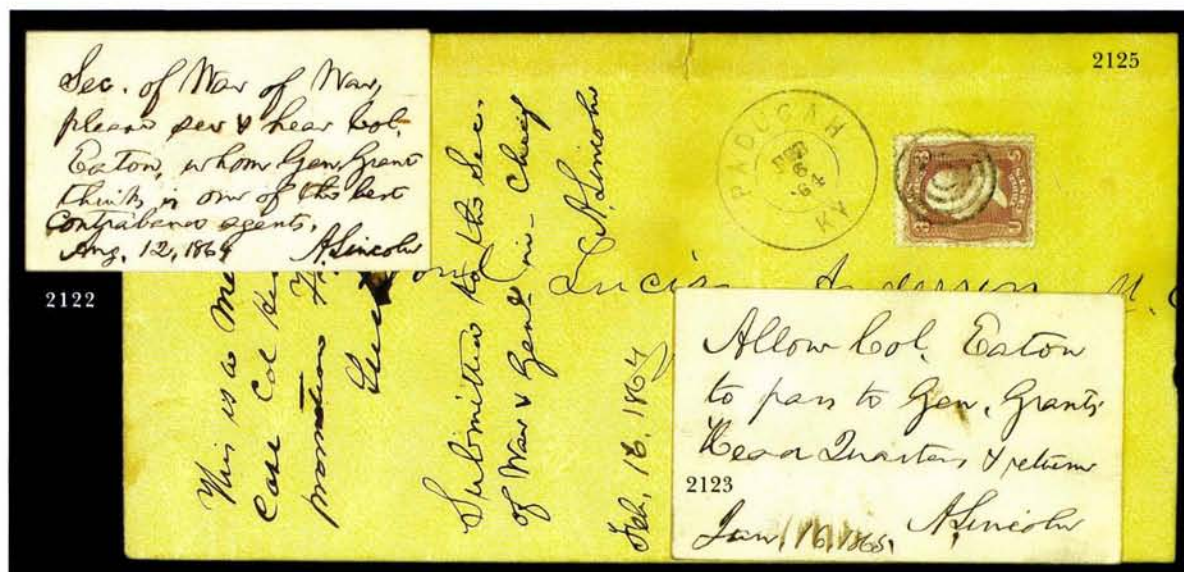 Sec. of War of War,
please see & hear Col.
Eaton, whom Gen. Grant
thinks is one of the best
contraband agents.
Aug. 12, 1864 A. Lincoln
2122
2125
PADUCAH
FEB
6
64
KY
3 3
U
Lucien Anderson M. C
This is a
Case Col
promotion
Submitted to the Sec.
of War & Genl-in-Chief
A. Lincoln
Feb, 16, 1864
Allow Col. Eaton
to pass to Gen. Grant's
Head Quarters, & return
2123
Jan 1865, A. Lincoln